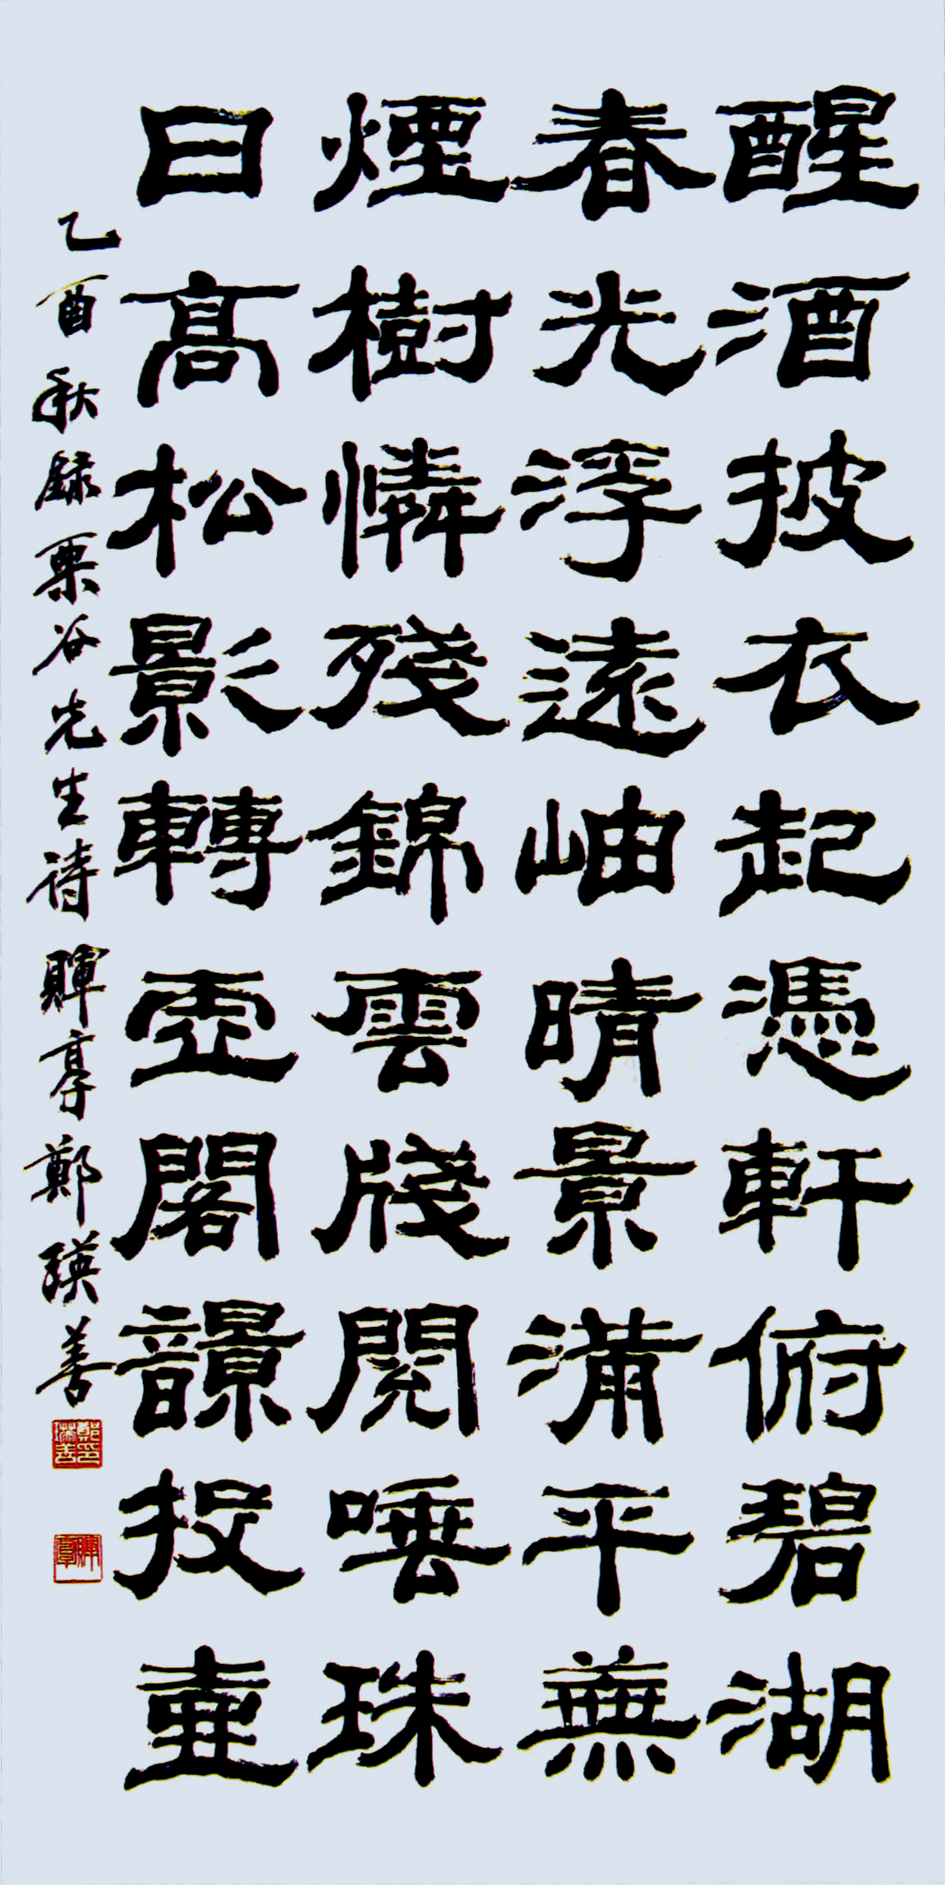 醒酒披衣起憑軒俯碧湖
春光浮遠岫晴景滿平蕪
煙樹憐殘錦雲牋閱唾珠
日高松影轉虛閣韻投壺
乙酉秋錄栗谷先生詩 暉亭鄭瑛善